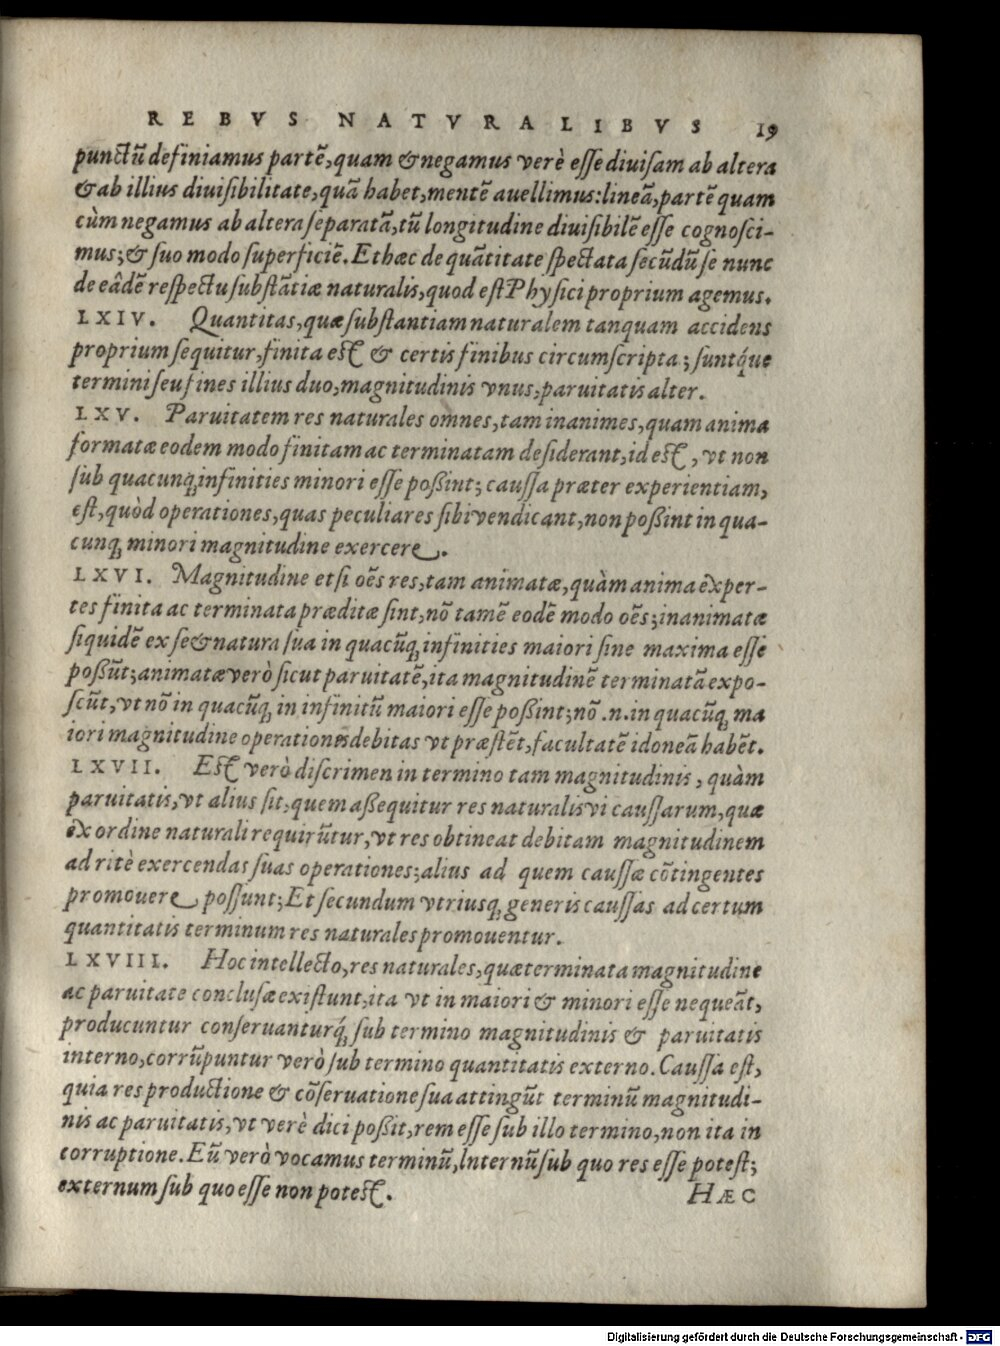 REBVS NATVRALIBVS 19
punctũ definiamus partẽ, quam & negamus verè eſſe diuiſam ab altera
& ab illius diuiſibilitate, quã habet, mentẽ auellimus: lineã, partẽ quam
cùm negamus ab altera ſeparatã, tũ longitudine diuiſibilẽ eſſe cognoſci-
mus; & ſuo modo ſuperficiẽ. Et hæc de quãtitate ſpectata ſecũdũ ſe nunc
de eâdẽ reſpectu ſubſtãtiæ naturalis, quod eſt Phyſici proprium agemus.
LXIV. Quantitas, quæ ſubſtantiam naturalem tanquam accidens
proprium ſequitur, finita eſt & certis finibus circumſcripta; ſuntq́ue
termini ſeu fines illius duo, magnitudinis vnus, paruitatis alter.
LXV. Paruitatem res naturales omnes, tam inanimes, quam anima
formatæ eodem modo finitam ac terminatam deſiderant, id eſt, vt non
ſub quacunq; infinities minori eſſe poßint; cauſſa præter experientiam,
eſt, quòd operationes, quas peculiares ſibi vendicant, non poßint in qua-
cunq; minori magnitudine exercere.
LXVI. Magnitudine etſi oẽs res, tam animatæ, quàm anima exper-
tes finita ac terminata præditæ ſint, nõ tamẽ eodẽ modo oẽs; inanimatæ
ſiquidẽ ex ſe & natura ſua in quacũq; infinities maiori ſine maxima eſſe
poßũt; animatæ verò ſicut paruitatẽ, ita magnitudinẽ terminatã expo-
ſcũt, vt nõ in quacũq; in infinitũ maiori eſſe poßint; nõ .n. in quacũq; ma
iori magnitudine operationes debitas vt præſtẽt, facultatẽ idoneã habẽt.
LXVII. Eſt verò diſcrimen in termino tam magnitudinis, quàm
paruitatis, vt alius ſit, quem aßequitur res naturalis vi cauſſarum, quæ
ex ordine naturali requirũtur, vt res obtineat debitam magnitudinem
ad ritè exercendas ſuas operationes; alius ad quem cauſſæ cõtingentes
promouere poſſunt; Et ſecundum vtriusq; generis cauſſas ad certum
quantitatis terminum res naturales promouentur.
LXVIII. Hoc intellecto, res naturales, quæ terminata magnitudine
ac paruitate concluſæ exiſtunt, ita vt in maiori & minori eſſe nequeãt,
producuntur conſeruanturq́; ſub termino magnitudinis & paruitatis
interno, corrũpuntur verò ſub termino quantitatis externo. Cauſſa eſt,
quia res productione & cõſeruatione ſua attingũt terminũ magnitudi-
nis ac paruitatis, vt verè dici poßit, rem eſſe ſub illo termino, non ita in
corruptione. Eũ verò vocamus terminũ, Internũ ſub quo res eſſe poteſt;
externum ſub quo eſſe non poteſt. HÆC
Digitalisierung gefördert durch die Deutsche Forschungsgemeinschaft - DFG